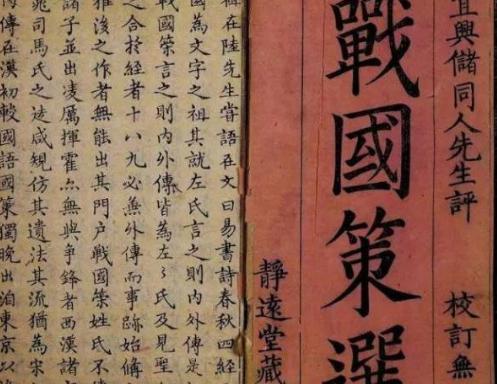 宜興儲同人先生評 校訂無
戰國策選
靜遠堂藏
在陸先生嘗語在文曰易書詩春秋四經
國為文字之祖其就左氏言之則内外傳是
戰國策言之則內外傳皆為左々氏及見聖
之合於經者十八九必無外傳而事跡始備
雅後之作者無能出其門户戰國策姓氏不傳
諸子並出凌厲揮霍尒無與爭鋒者西漢諸
司馬氏之迻咸規仿其遺法其流猶為宋
傳在漢初較國語國策獨晚出洎東京以